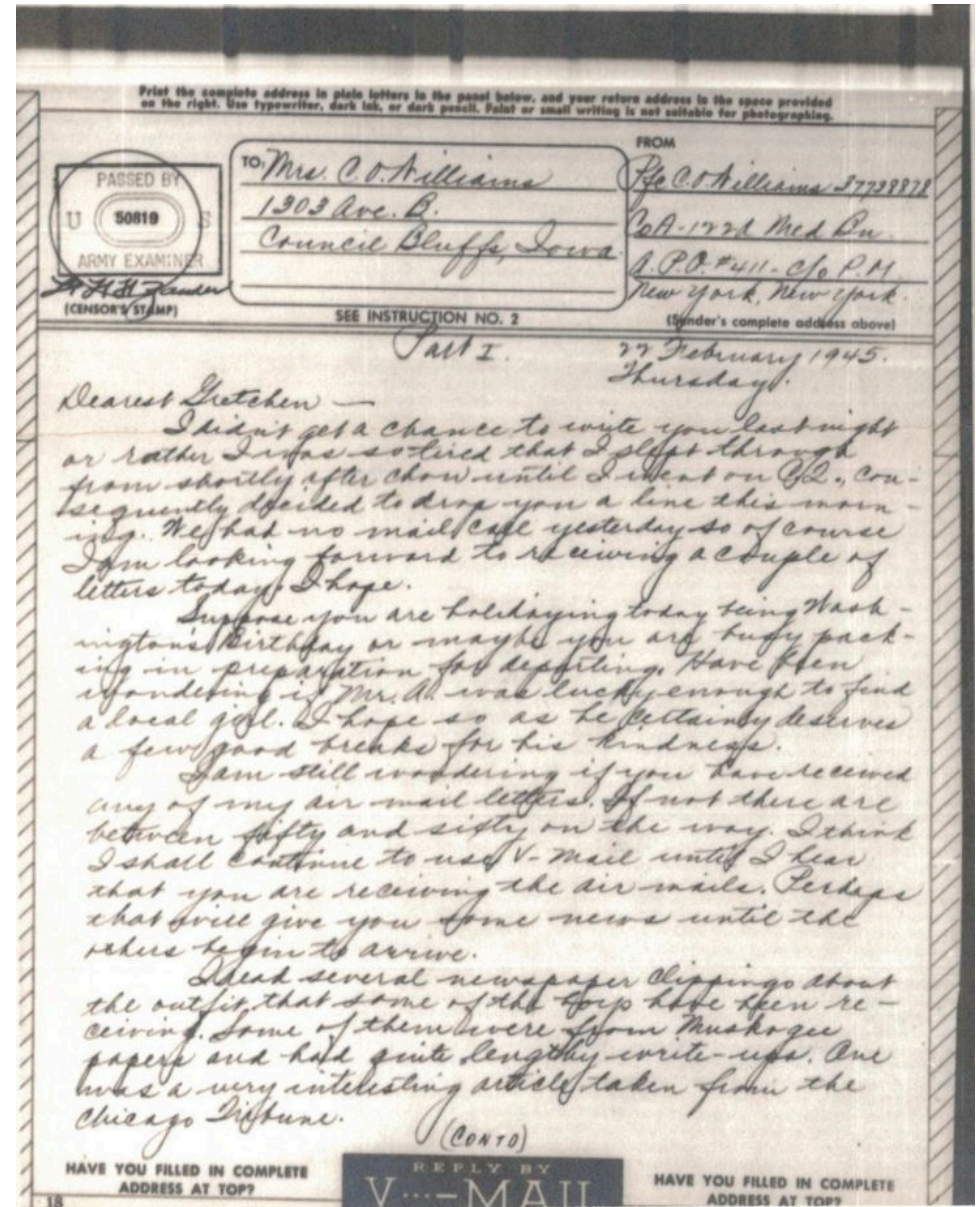 Print the complete address in plain letters in the panel below, and your return address in the space provided
on the right. Use typewriter, dark ink, or dark pencil. Faint or small writing is not suitable for photographing.
FROM
PASSED BY
U 50819 S
ARMY EXAMINER
(CENSOR'S STAMP)
TO: Mrs. C. O. Williams
1303 Ave. B.
Council Bluffs, Iowa
Pfc C. O. Williams 37738878
Co A - 122d Med Bn
A.P.O. #411 - c/o P.M.
New York, New York.
SEE INSTRUCTION NO. 2
(Sender's complete address above)
Part I.
22 February 1945.
Thursday.
Dearest Gretchen —
I didn't get a chance to write you last night
or rather I was so tired that I slept through
from shortly after chow until I went on C.Q., con-
sequently decided to drop you a line this morn-
ing. We had no mail call yesterday so of course
I am looking forward to receiving a couple of
letters today, I hope.
Suppose you are holidaying today being Wash-
ington's Birthday or maybe you are busy pack-
ing in preparation for departing. Have been
wondering if Mr. A. was lucky enough to find
a local girl. I hope so as he certainly deserves
a few good breaks for his kindness.
I am still wondering if you have received
any of my air mail letters. If not there are
between fifty and sixty on the way. I think
I shall continue to use V-mail until I hear
that you are receiving the air mails. Perhaps
that will give you some news until the
others begin to arrive.
I read several newspaper clippings about
the outfit that some of the boys have been re-
ceiving. Some of them were from Muskogee
papers and had quite lengthy write-ups. One
was a very interesting article taken from the
Chicago Tribune.
(CONTD)
HAVE YOU FILLED IN COMPLETE
ADDRESS AT TOP?
REPLY BY
V···—MAIL
HAVE YOU FILLED IN COMPLETE
ADDRESS AT TOP?
18